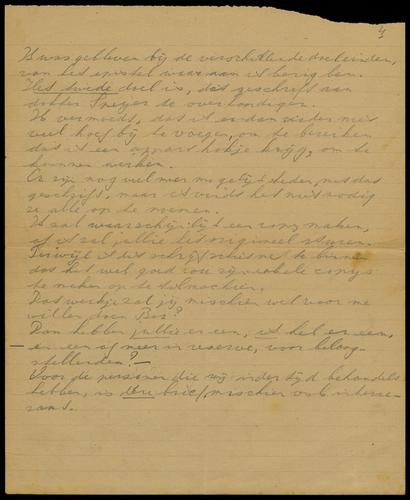 4
Ik was gebleven bij de verschillende doeleinden,
van het epistel waar aan ik bezig ben.
Het tweede doel is, dit geschrift aan
dokter Speyer te overhandigen.
Ik vermoed, dat ik er dan verder niets
veel hoef bij te voegen, om te bereiken
dat ik een apart hokje krijg, om te
kunnen werken.
Er zijn nog veel meer mogelijkheden, met dit
geschrift, maar ik vindt het niet nodig
ze alle op te noemen.
Ik zal waarschijnlijk een copy maken,
of ik zal jullie het origineel sturen.
Terwijl ik dit schrijf schiet me te binnen
dat het wel goed zou zijn enkele copys
te maken op de tikmachine.
Dat werkje zal jij misschien wel voor me
willen doen Bos?
Dan hebben jullie er een, ik heb er een,
en een of meer in reserve, voor belang-
stellenden?
Voor de personen die mij indertijd behandeld
hebben, is deze brief, misschien ook interes-
sant.